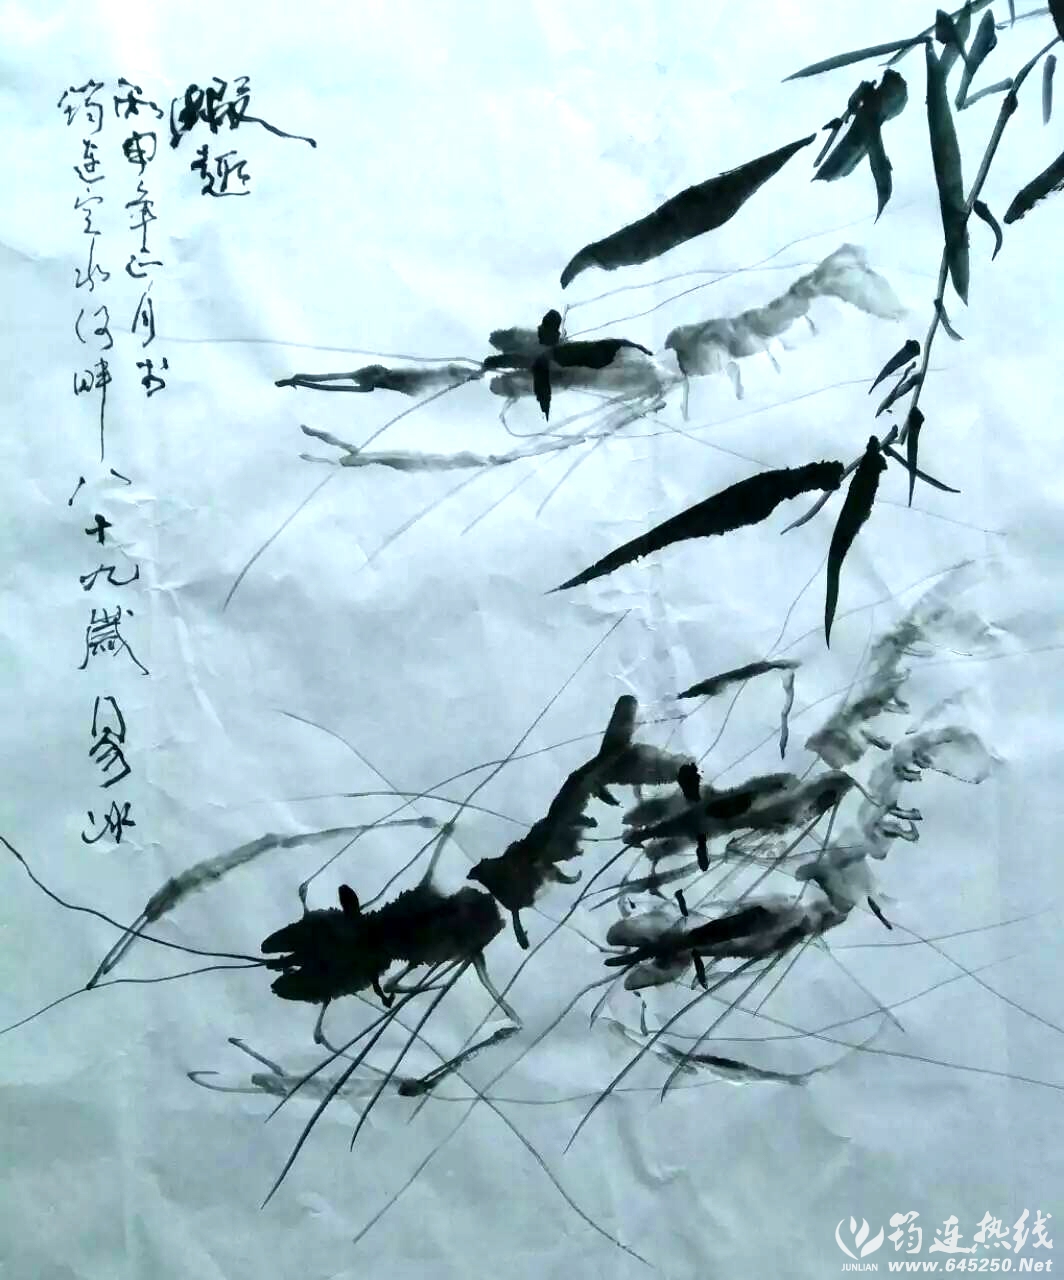 蝦趣
丙申年正月书
筠连定水河畔八十九歲冰
筠连热线
JUNLIAN
www.645250.Net